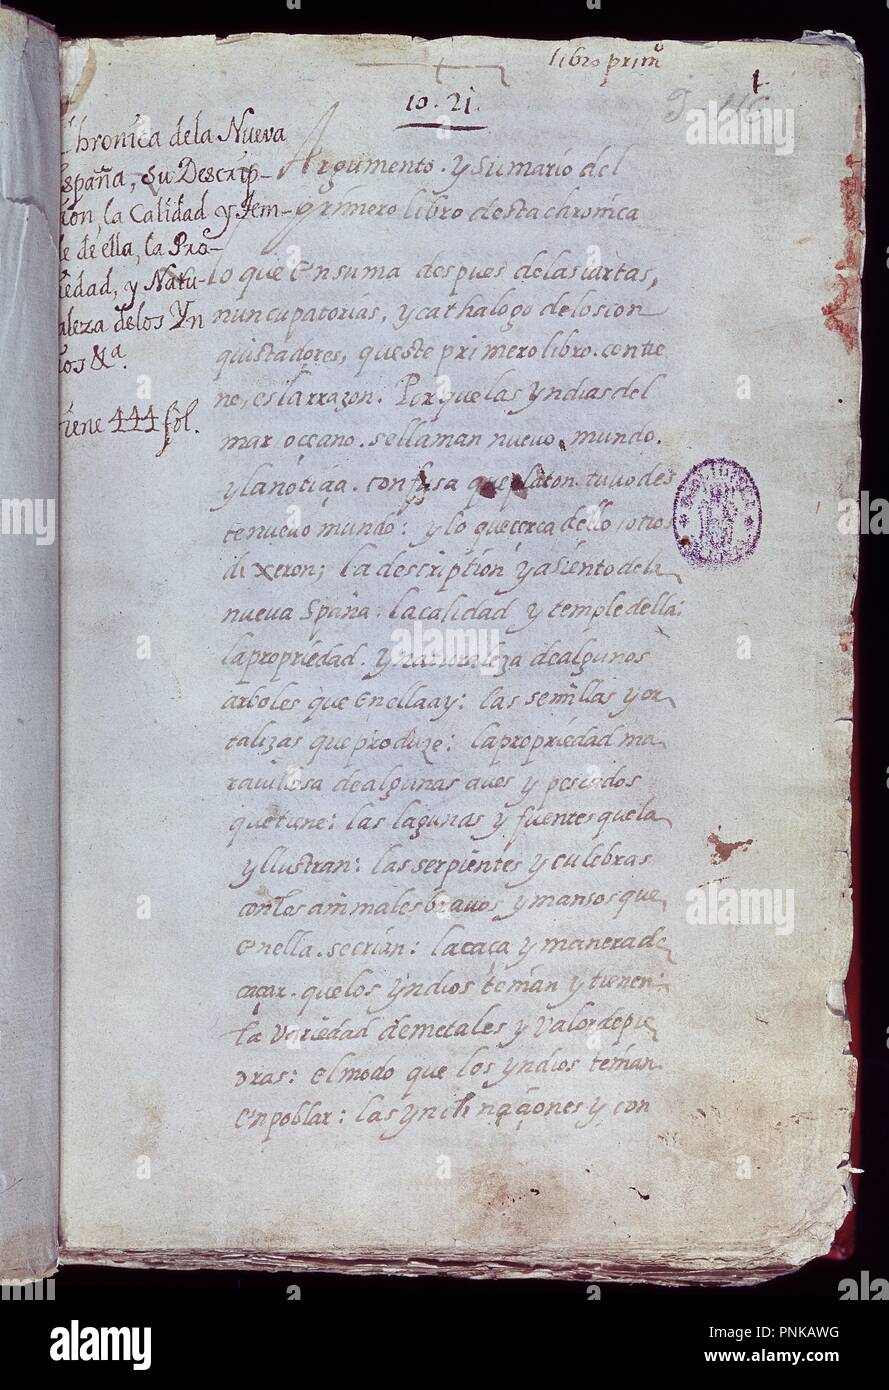 libro prim͂
1
J-116
10.21.
Chronica dela Nueva
España, su Descrip-
cion, la Calidad y Tem-
ple de ella, la Pro-
piedad, y Natu-
raleza delos Yn
dios &a.
tiene 444 fol.
Argumento. y Sumario del
primero libro desta chronica
lo que en suma despues delas cartas,
nuncupatorias, y cathalogo delos con
quistadores, queste primero libro. contie
ne, es la rrazon. Por que las yndias del
mar occeano. se llaman nuevo mundo.
y la noticia. confusa que platon. tuuo des
te nuevo mundo: y lo que cerca dello otros
dixeron; la descriptión y asiento de la
nueva Spaña: la calidad y temple della:
la propriedad. y naturaleza de algunos
arboles que en ella ay: las semillas y or
talizas que produze: la propriedad ma
rauillosa de algunas aues y pescados
que tiene: las lagunas y fuentes que la
yllustran: las serpientes y culebras
con los animales bravos y mansos que
en ella. se crian: la caça y manera de
caçar. que los yndios tenían y tienen:
la variedad de metales y valor de pie
dras: el modo que los yndios tenían
en poblar: las ynclinaçiones y con
BIBLIOTECA
alamy
Image ID: PNKAWG
www.alamy.com